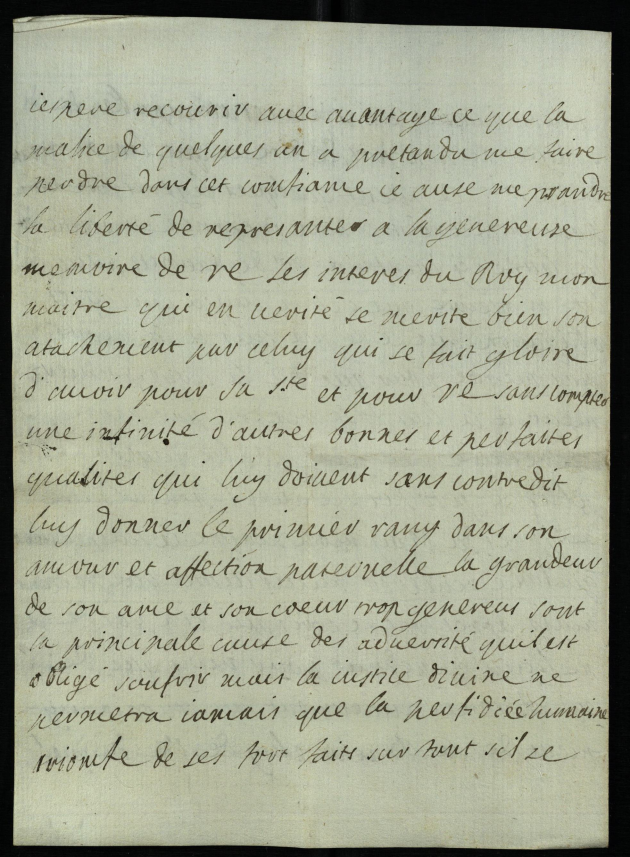 iespere recouvrir avec auantage ce que la
malice de quelques un a pretandu me faire
perdre dans cet comfiance ie ause me prandre
la liberté de represanter a la genereuse
memoire de ve les interes du Roy mon
maitre qui en uerité se merite bien son
atachement par celuy qui se fait gloire
d'auoir pour sa Ste et pour ve sans compter
une infinité d'autres bonnes et perfaites
qualites qui luy doiuent sans contredit
luy donner le premier rang dans son
amour et affection paternelle la grandeur
de son ame et son coeur trop genereus sont
la principale cause des aduersité quil est
obligé soufrir mais la iustice diuine ne
permetra iamais que la perfidiée humaine
triomfe de ses tort faits sur tout sil se